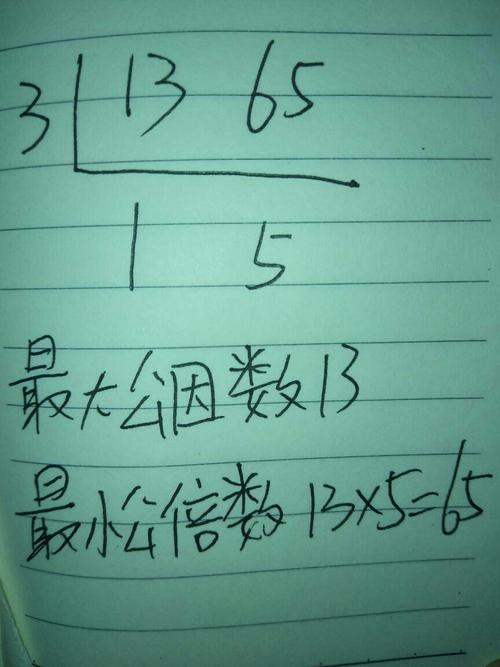 3 13 65
1 5
最大公因数13
最小公倍数13×5=65